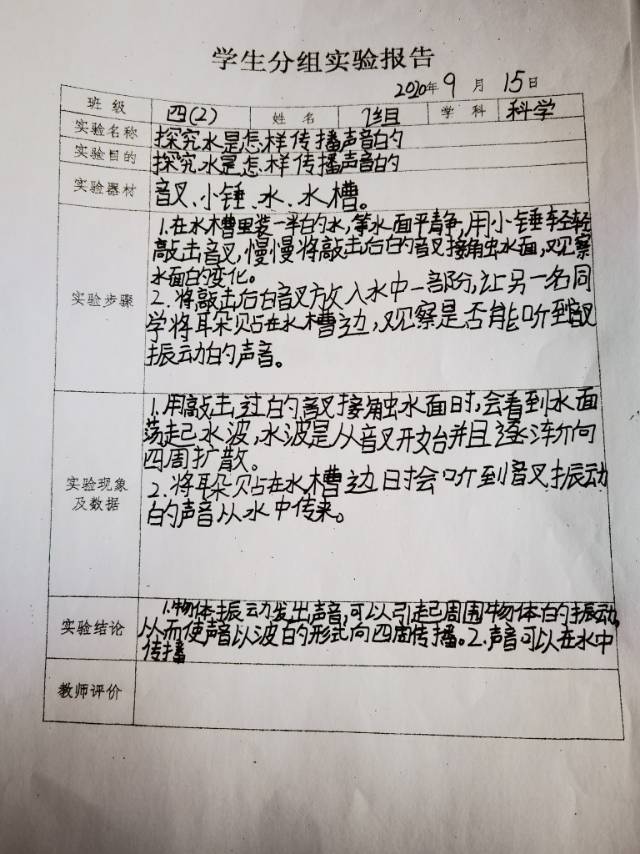 学生分组实验报告
2020年9月15日
班级 四(2) 姓名 1组 学科 科学
实验名称 探究水是怎样传播声音的
实验目的 探究水是怎样传播声音的
实验器材 音叉、小锤、水、水槽。
1.在水槽里装一半的水,等水面平静,用小锤轻轻
敲击音叉,慢慢将敲击后的音叉接触水面,观察
水面的变化。
实验步骤
2.将敲击后音叉放入水中一部分,让另一名同
学将耳朵贴在水槽边,观察是否能听到音叉
振动的声音。
1.用敲击过的音叉接触水面时,会看到水面
荡起水波,水波是从音叉开始并且逐渐向
四周扩散。
实验现象
及数据
2.将耳朵贴在水槽边时会听到音叉振动
的声音从水中传来。
实验结论
1.物体振动发出声音,可以引起周围物体的振动,
从而使声音以波的形式向四周传播。2.声音可以在水中
传播
教师评价